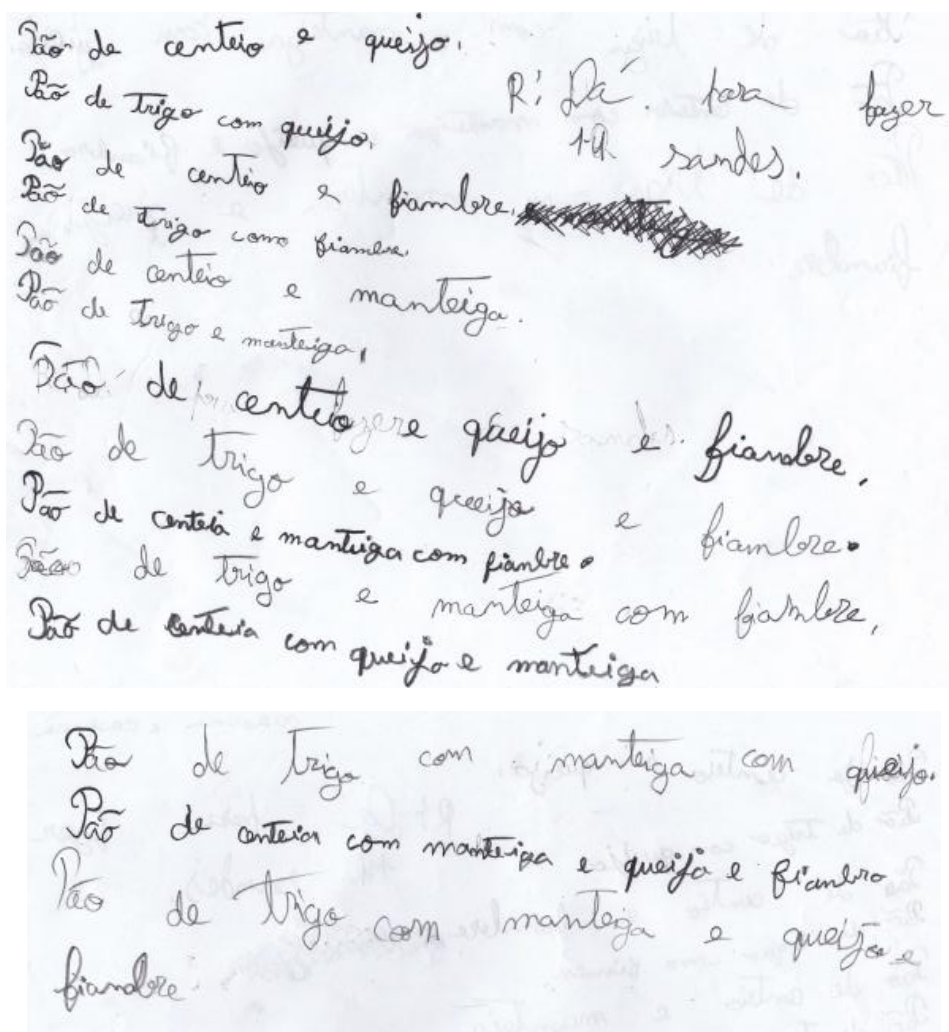 Pão de centeio e queijo.
Pão de trigo com queijo.
R: Dá para fazer
14 sandes.
Pão de centeio e fiambre.
Pão de trigo como fiambre.
Pão de centeio e manteiga.
Pão de trigo e manteiga,
Pão de centeio e queijo e fiambre.
Pão de trigo e queijo e fiambre.
Pão de centeia e manteiga com fianbre.
Pão de trigo e manteiga com fiambre,
Pão de centeia com queijo e manteiga
Pão de trigo com manteiga com queijo.
Pão de centeia com manteiga e queijo e fianbra
Pão de trigo com manteiga e queijo e
fiambre.